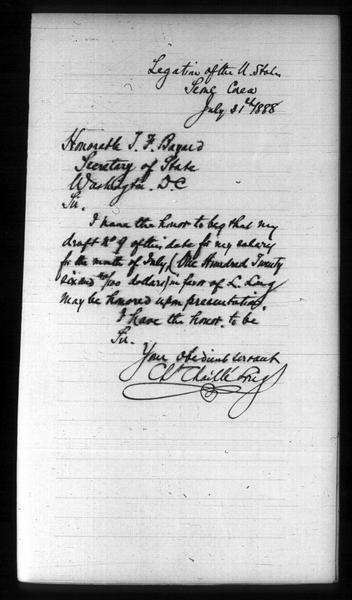 Legation of the U. States
Seoul Corea
July 31st 1888
Honorable T. F. Bayard
Secretary of State
Washington. D.C
Sir.
I have the honor to beg that my
draft No 9 of this date for my salary
for the month of July, (One Hundred Twenty
six and /100 dollars) in favor of L. Long
may be honored upon presentation.
I have the honor. to be
Sir.
Your obedient servant
Ch. Chaillé Long